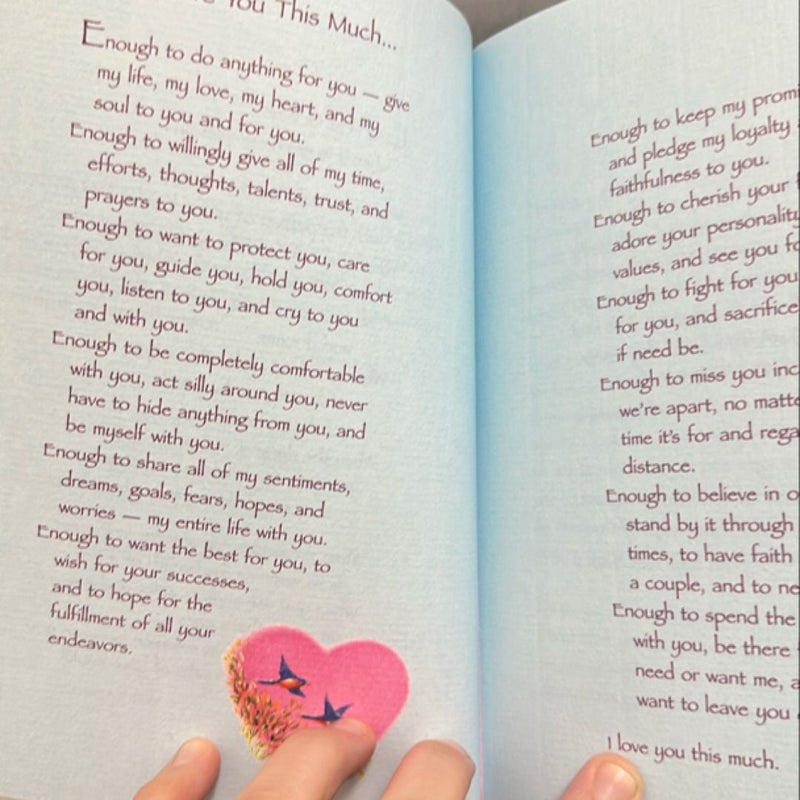 You This Much...
Enough to do anything for you — give
my life, my love, my heart, and my
soul to you and for you.
Enough to willingly give all of my time,
efforts, thoughts, talents, trust, and
prayers to you.
Enough to want to protect you, care
for you, guide you, hold you, comfort
you, listen to you, and cry to you
and with you.
Enough to be completely comfortable
with you, act silly around you, never
have to hide anything from you, and
be myself with you.
Enough to share all of my sentiments,
dreams, goals, fears, hopes, and
worries — my entire life with you.
Enough to want the best for you, to
wish for your successes,
and to hope for the
fulfillment of all your
endeavors.
Enough to keep my
and pledge my loyalty
faithfulness to you.
Enough to cherish your
adore your personality
values, and see you
Enough to fight for you
for you, and sacrifice
if need be.
Enough to miss you
we're apart, no
time it's for and
distance.
Enough to believe in
stand by it through
times, to have faith
a couple, and to
Enough to spend the
with you, be there
need or want me,
want to leave you
I love you this much.